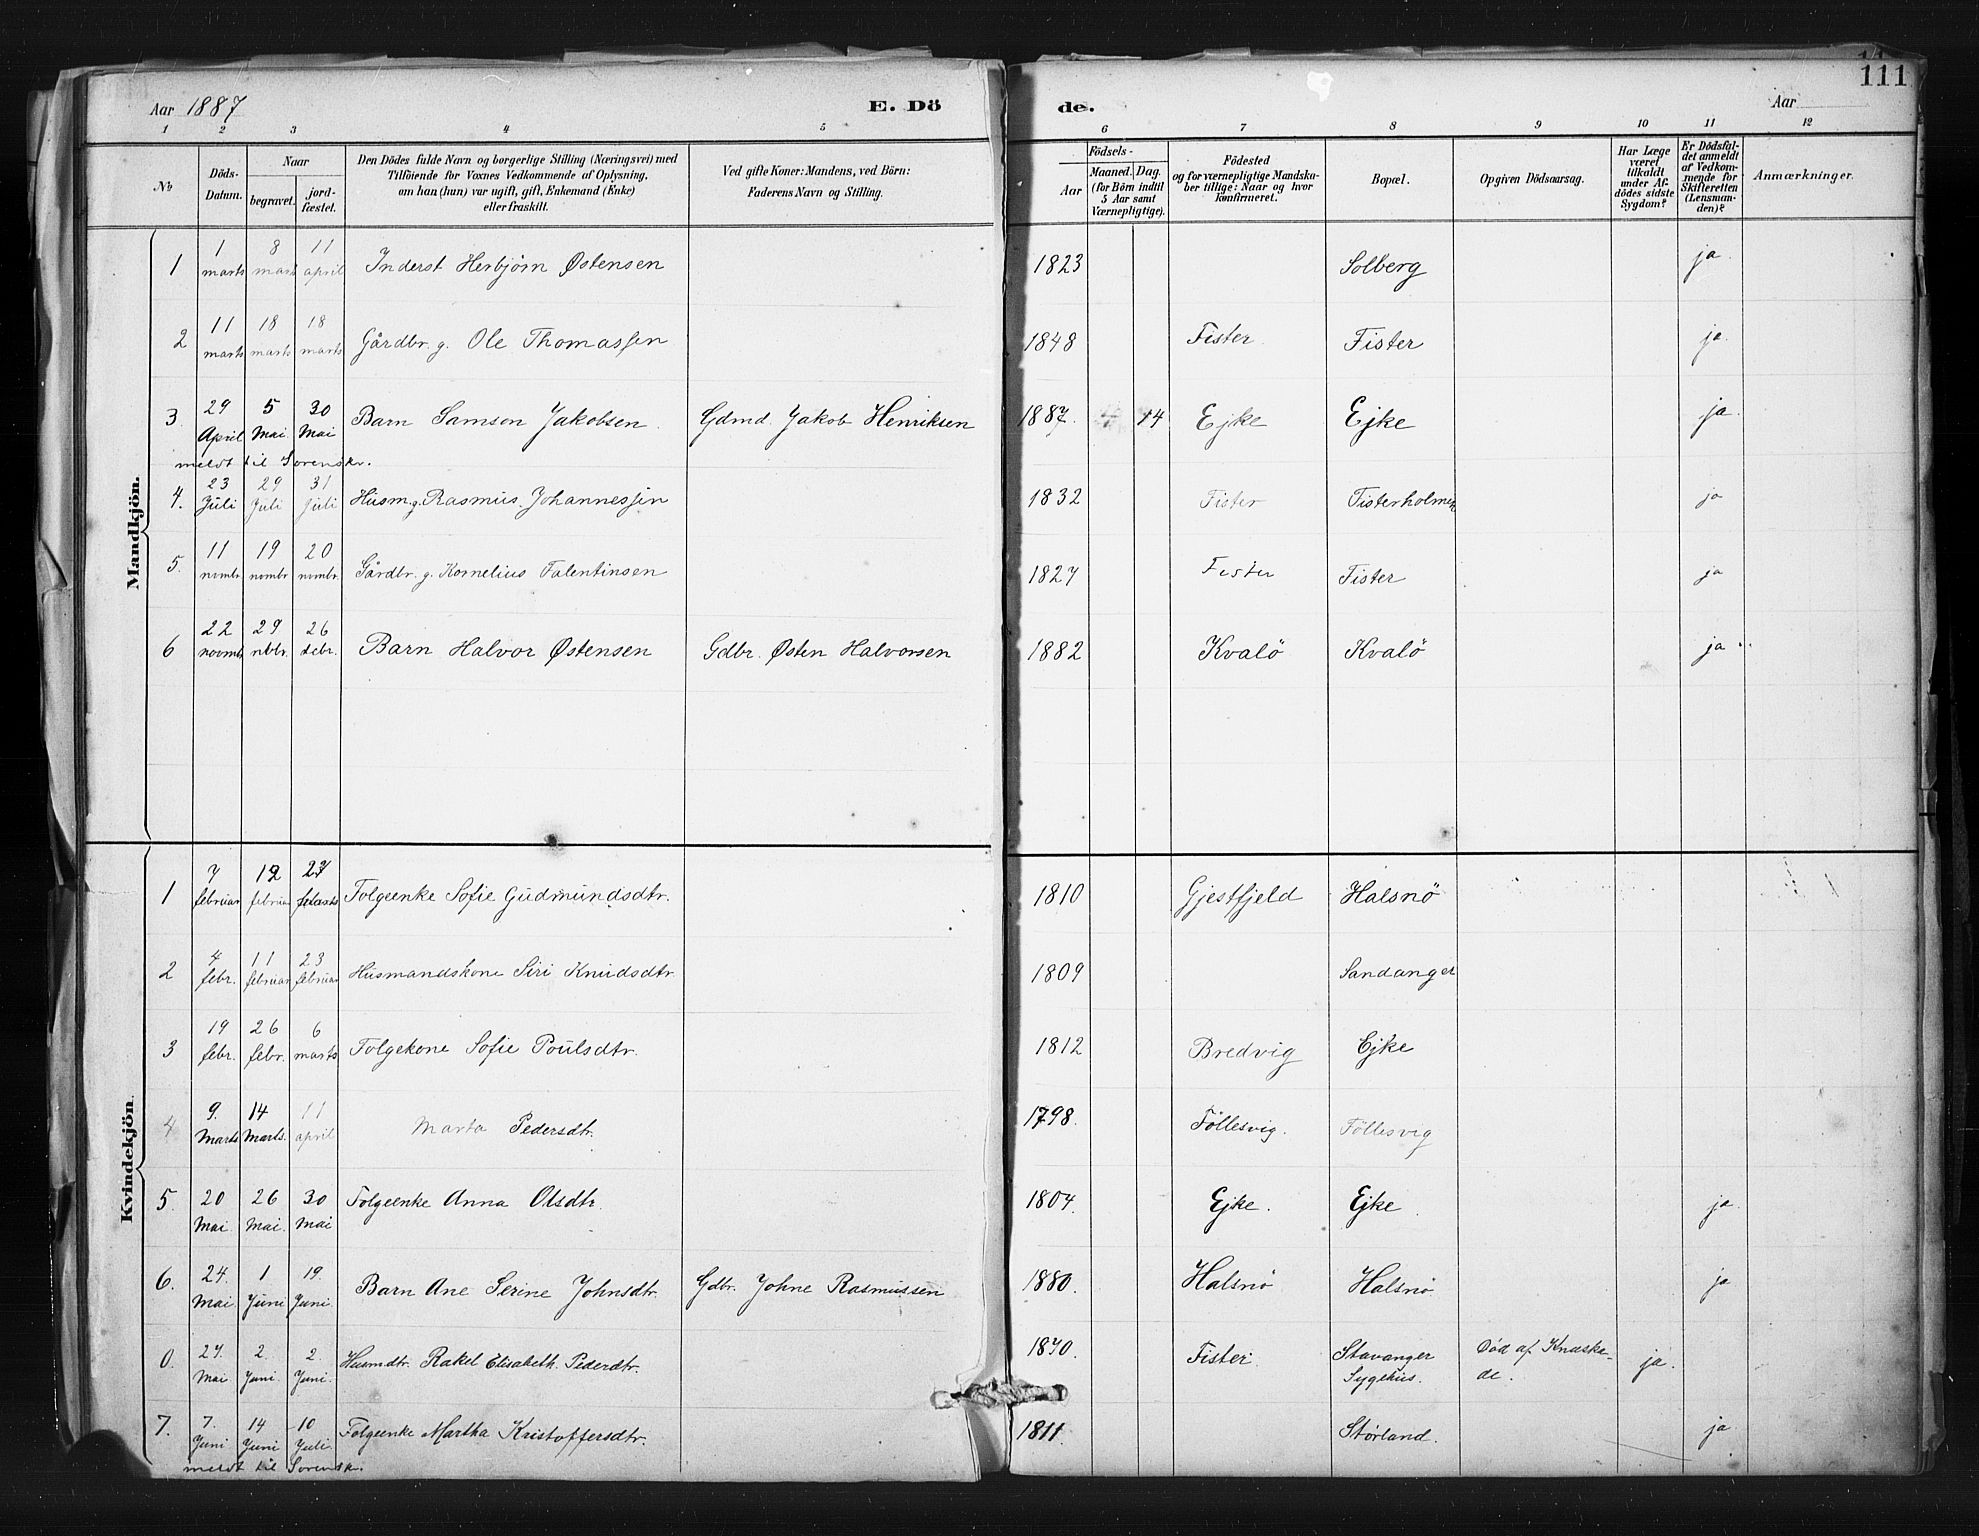 Aar 1887 E. Dö de. Aar 111
1 2 3 4 5 6 7 8 9 10 11 12
No Döds-Datum. Naar begravet. jord-fæstet. Den Dödes fulde Navn og borgerlige Stilling (Næringsvei) med Tilföiende for Voxnes Vedkommende af Oplysning, om han (hun) var ugift, gift, Enkemand (Enke) eller fraskilt. Ved gifte Koner: Mandens, ved Börn: Faderens Navn og Stilling. Födsels- Aar Maaned. Dag. (for Börn indtil 5 Aar samt Værnepligtige). Födested og for værnepligtige Mandskaber tillige: Naar og hvor konfirmeret. Bopæl. Opgiven Dödsaarsag. Har Læge været tilkaldt under Afdödes sidste Sygdom? Er Dödsfaldet anmeldt af Vedkommende for Skifteretten (Lensmanden)? Anmærkninger.
Mandkjön.
1 1 marts 8 marts 11 april Inderst Herbjörn Østensen 1823 Solberg ja
2 11 marts 18 marts 18 marts Gårdbr. g. Ole Thomassen 1848 Fister Fister ja.
3. 29 April 5 Mai 30 Mai Barn Samson Jakobsen. Gdmd. Jakob Henriksen 1887. 14 Ejke Ejke ja.
meldt til Sorenskr.
4. 23 Juli 29 Juli 31 Juli Husm. g. Rasmus Johannessen 1832 Fister Fisterholmen ja
5. 11 novmbr 19 novmbr 20 novmbr. Gårdbr. g. Kornelius Falentinsen 1827 Fister Fister ja
6 22 novmb. 29 nvbr. 26 debr. Barn Halvor Østensen Gdbr. Østen Halvorsen 1882 Kvalö Kvalö ja
Kvindekjön.
1 7 februar 12 februar 27 Folgeenke Sofie Gudmundsdtr. 1810 Gjestfjeld Halsnö
2 4 febr. 11 februar 23 februar Husmandskone Siri Knudsdtr. 1809 Sandanger
3 19 febr. 26 febr. 6 marts Folgekone Sofie Poulsdtr. 1812 Bredvig Ejke
4 9. Marts 14 Marts. 11 april Marta Pedersdtr. 1798. Föllesvig. Föllesvig
5. 20 Mai 26 Mai. 30 Mai Folgeenke Anna Olsdtr. 1804. Ejke. Ejke. ja.
6. 24. Mai. 1 Juni 19. Juni. Barn Ane Serine Johnsdtr. Gdbr. Johne Rasmussen 1880. Halsnö Halsnö. ja
0. 27. Mai 2. Juni. 2. Juni. Husmdtr. Rakel Elisabeth. Pederdtr. 1870. Fister Stavanger Sygehus. Död af Knæskade. ja.
7. 7. Juni 14 Juni 10 Juli. Folgeenke Martha Kristoffersdtr. 1811. Størland. ja
meldt til Sorenskr.